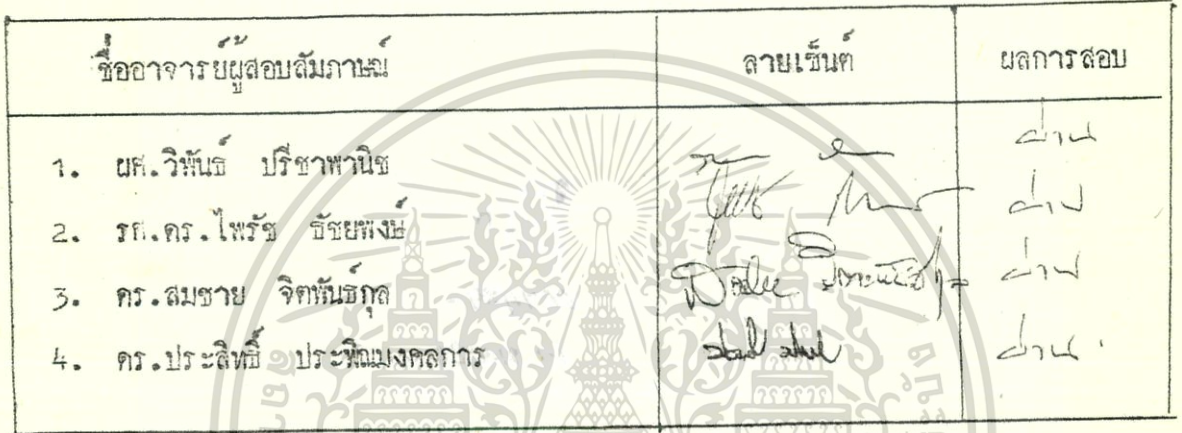 ชื่ออาจารย์ผู้สอบสัมภาษณ์ ลายเซ็นต์ ผลการสอบ
1. ผศ.วิพันธ์ ปรีชาพานิช ผ่าน
2. รศ.ดร.ไพรัช ธัชยพงษ์ ผ่าน
3. ดร.สมชาย จิตพันธ์กุล ผ่าน
4. ดร.ประสิทธิ์ ประพิณมงคลการ ผ่าน